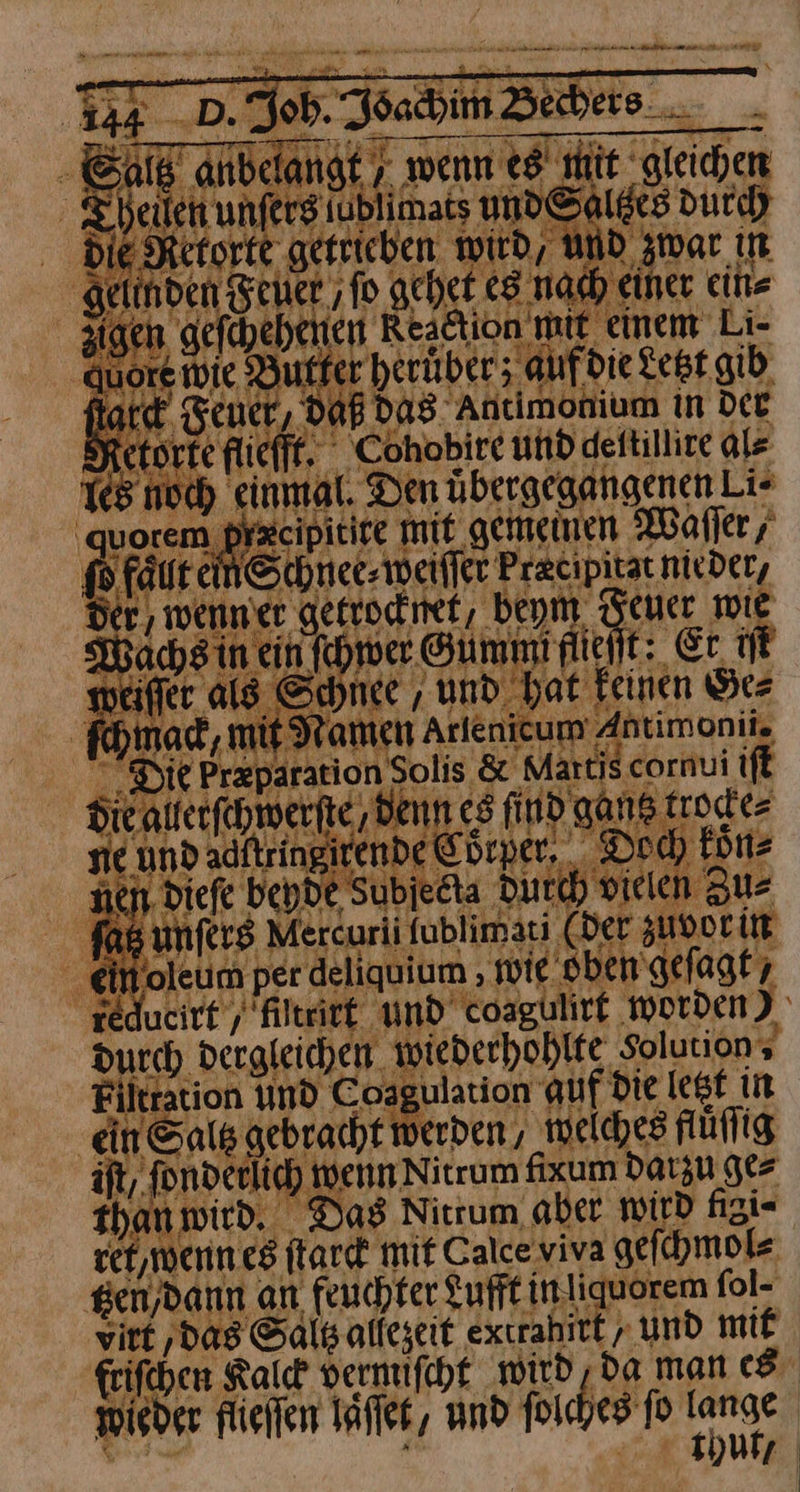 144 D. Joh. Joachim Bechers
Saltz anbelangt / wenn es mit gleichen
Theilen unſers ſublimats und Saltzes durch
die Retorte getrieben wird / und zwar in
gelinden Feuer / ſo gehet es nach einer ein⸗
zigen geſchehenen Reaction mit einem Li-
quore wie Butter heruͤber; auf die Letzt gib
ſtarck Feuer / daß das Antimonium in der
Retorte flieſſt. Cohobire und deſtillire al⸗
les noch einmal. Den uͤbergegangenen Li-
quorem præcipitire mit gemeinen Waſſer /
ſo faͤllt ein Schnee⸗weiſſer Præcipitat nieder /
der / wenn er getrocknet / beym Feuer wie
Wachs in ein ſchwer Gummi flieſſt: Er iſt
weiſſer als Schnee / und hat keinen Ge⸗
ſchmack / mit Namen Arſenicum Antimonii.
Die Præparation Solis & Martis cornui iſt
die allerſchwerſte / denn es ſind gantz trocke⸗
ne und adſtringirende Coͤrper. Doch koͤn⸗
nen dieſe beyde Subjecta durch vielen Zu⸗
ſatz unſers Mercurii ſublimati (der zuvor in
ein oleum per deliquium, wie oben geſagt /
reducirt / filtrirt und coagulirt worden)
durch dergleichen wiederhohlte Solution,
Filtration und Coagulation auf die letzt in
ein Saltz gebracht werden / welches fluͤſſig
iſt / ſonderlich wenn Nitrum fixum darzu ge⸗
than wird. Das Nitrum aber wird figi-
ret / wenn es ſtarck mit Calce viva geſchmol⸗
tzen / dann an feuchter Lufft in liquorem ſol-
virt / das Saltz allezeit extrahirt / und mit
friſchen Kalck vermiſcht wird / da man es
wieder flieſſen laͤſſet / und ſolches ſo lange
thut /